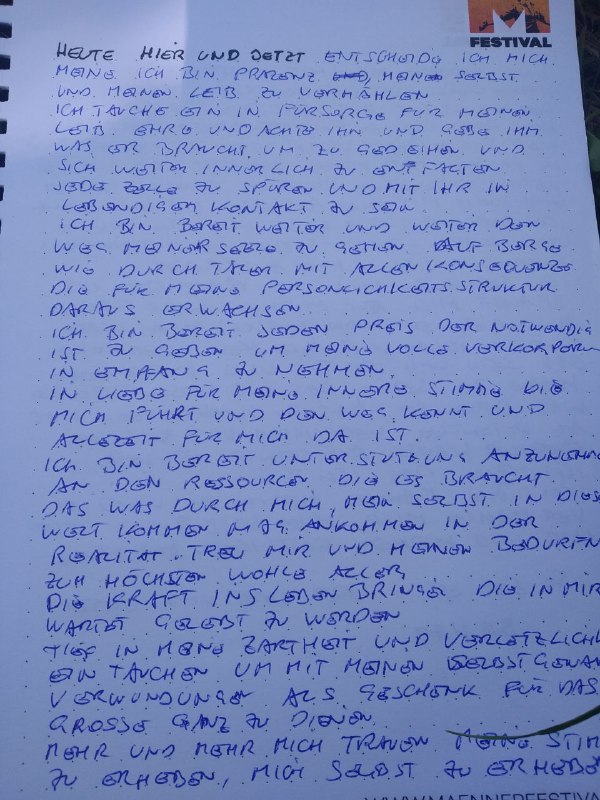 M
FESTIVAL
HEUTE HIER UND JETZT ENTSCHEIDE ICH MICH
MEINE ICH BIN PRÄZENZ, MEIN SELBST
UND MEINEN LEIB ZU VERMÄHLEN
ICH TAUCHE EIN IN FÜRSORGE FÜR MEINEN
LEIB EHRE UND ACHTE IHN UND GEBE IHM
WAS ER BRAUCHT UM ZU GEDEIHEN UND
SICH WEITER INNERLICH ZU ENTFALTEN
JEDE ZELLE ZU SPÜREN UND MIT IHR IN
LEBENDIGEM KONTAKT ZU SEIN
ICH BIN BEREIT WEITER UND WEITER DEN
WEG MEINER SEELE ZU GEHEN AUF BERGE
WIE DURCH TÄLER MIT ALLEN KONSEQUENZE
DIE FÜR MEINE PERSÖNLICHKEITSSTRUKTUR
DARAUS ERWACHSEN
ICH BIN BEREIT JEDEN PREIS DER NOTWENDIG
IST ZU GEBEN UM MEINE VOLLE VERKÖRPERU
IN EMPFANG ZU NEHMEN
IN LIEBE FÜR MEINE INNERE STIMME DIE
MICH FÜHRT UND DEN WEG KENNT UND
ALLEZEIT FÜR MICH DA IST.
ICH BIN BEREIT UNTERSTÜTZUNG ANZUNEHME
AN DEN RESSOURCEN DIE ES BRAUCHT
DAS WAS DURCH MICH, MEIN SELBST IN DIES
WELT KOMMEN MAG ANKOMMEN IN DER
REALITÄT TREU MIR UND MEINEN BEDÜRFN
ZUM HÖCHSTEN WOHLE ALLER
DIE KRAFT INS LEBEN BRINGE DIE IN MIR
WARTET GELEBT ZU WERDEN
TIEF IN MEINE ZARTHEIT UND VERLETZLICH
EIN TAUCHEN UM MIT MEINEN SELBSTGEWÄH
VERWUNDUNGEN ALS GESCHENK FÜR DAS
GROSSE GANZ ZU DIENEN
MEHR UND MEHR MICH TRAUEN MEINE STIM
ZU ERHEBEN, MICH SELBST ZU ERHEBE